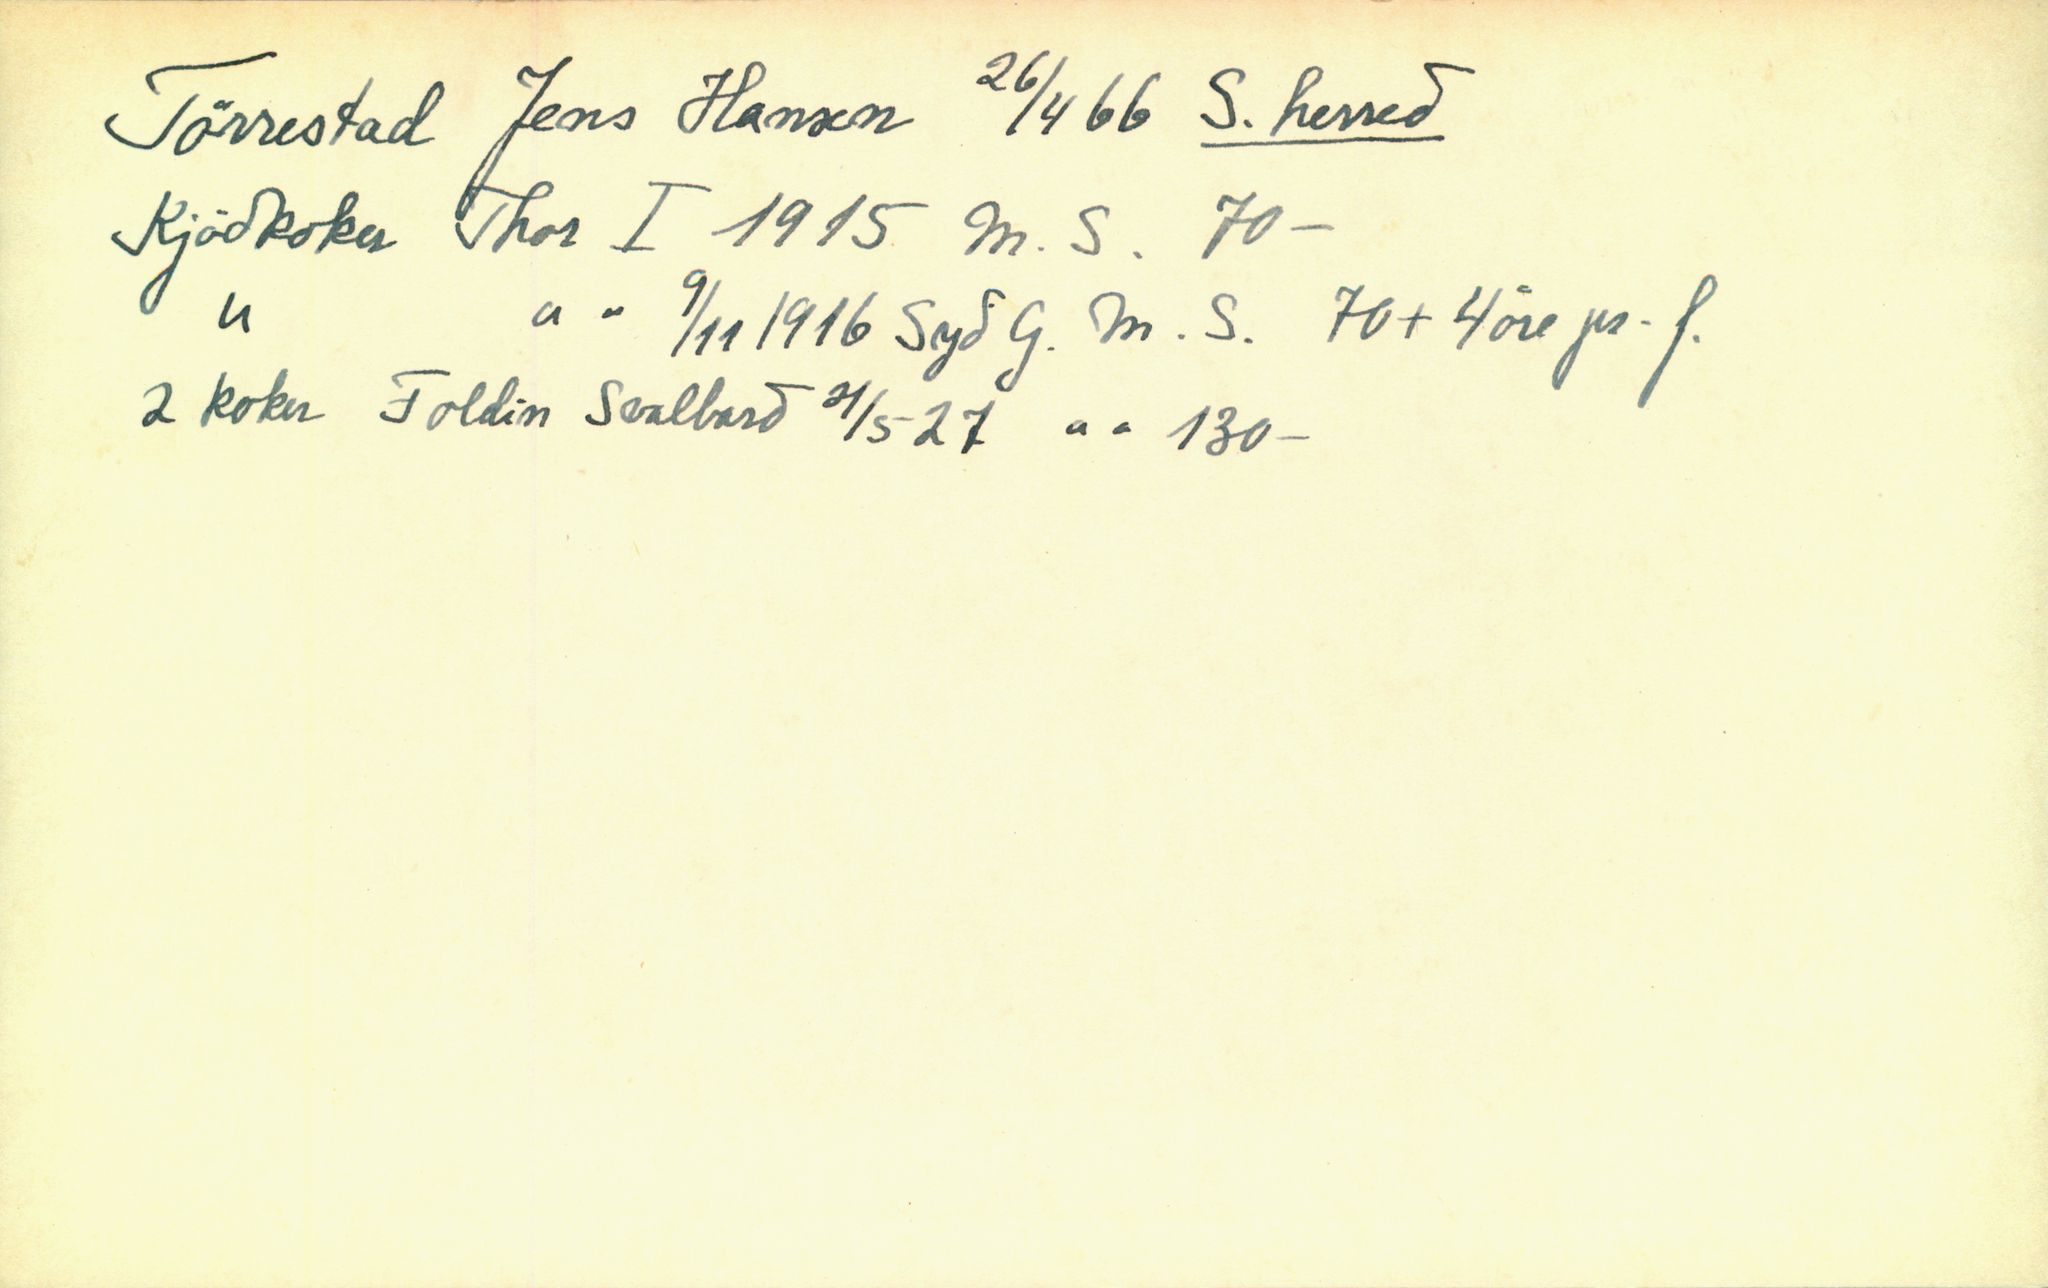 Törrestad Jens Hansen 26/4 66 S. herred
Kjödkoker Thor I 1915 M. S. 70-
" " " 9/11 1916 Syd G. M. S. 70 + 4 öre pr. f.
2 koker Foldin Svalbard 21/5 27 " " 130-